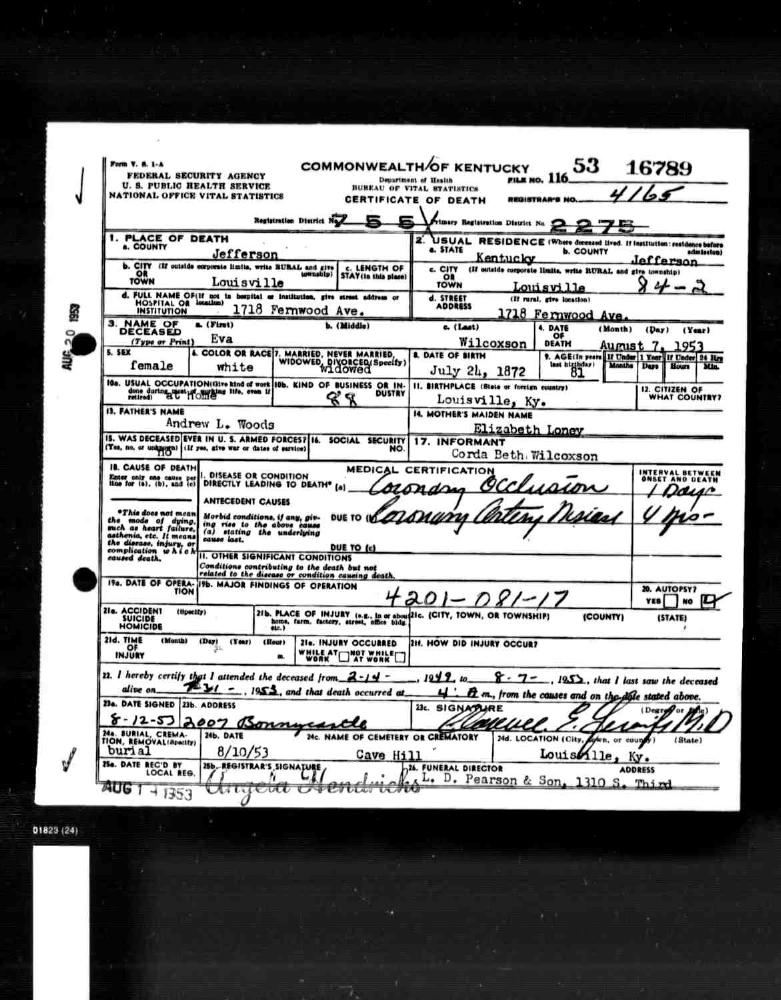 Form V. S. 1-A
FEDERAL SECURITY AGENCY
U. S. PUBLIC HEALTH SERVICE
NATIONAL OFFICE VITAL STATISTICS
COMMONWEALTH OF KENTUCKY
Department of Health
BUREAU OF VITAL STATISTICS
CERTIFICATE OF DEATH
FILE NO. 116 53 16789
REGISTRAR'S NO. 4165
Registration District No. 755 Primary Registration District No. 2275
1. PLACE OF DEATH
a. COUNTY
Jefferson
2. USUAL RESIDENCE (Where deceased lived. If institution: residence before admission)
a. STATE Kentucky b. COUNTY Jefferson
b. CITY (If outside corporate limits, write RURAL and give township)
OR
TOWN Louisville
c. LENGTH OF
STAY (in this place)
c. CITY (If outside corporate limits, write RURAL and give township)
OR
TOWN Louisville 84-2
d. FULL NAME OF (If not in hospital or institution, give street address or location)
HOSPITAL OR
INSTITUTION 1718 Fernwood Ave.
d. STREET (If rural, give location)
ADDRESS 1718 Fernwood Ave.
3. NAME OF DECEASED
(Type or Print)
a. (First) Eva
b. (Middle)
c. (Last) Wilcoxson
4. DATE OF DEATH (Month) (Day) (Year)
August 7, 1953
5. SEX
female
6. COLOR OR RACE
white
7. MARRIED, NEVER MARRIED,
WIDOWED, DIVORCED (Specify)
widowed
8. DATE OF BIRTH
July 24, 1872
9. AGE (In years last birthday)
81
If Under 1 Year
Months Days
If Under 24 Hrs
Hours Min.
10a. USUAL OCCUPATION (Give kind of work done during most of working life, even if retired)
at home
10b. KIND OF BUSINESS OR INDUSTRY
88
11. BIRTHPLACE (State or foreign country)
Louisville, Ky.
12. CITIZEN OF
WHAT COUNTRY?
13. FATHER'S NAME
Andrew L. Woods
14. MOTHER'S MAIDEN NAME
Elizabeth Loney
15. WAS DECEASED EVER IN U. S. ARMED FORCES?
(Yes, no, or unknown) (If yes, give war or dates of service)
no
16. SOCIAL SECURITY NO.
17. INFORMANT
Corda Beth Wilcoxson
18. CAUSE OF DEATH
Enter only one cause per
line for (a), (b), and (c)
MEDICAL CERTIFICATION
INTERVAL BETWEEN
ONSET AND DEATH
I. DISEASE OR CONDITION
DIRECTLY LEADING TO DEATH* (a) Coronary Occlusion 1 Days
*This does not mean
the mode of dying,
such as heart failure,
asthenia, etc. It means
the disease, injury, or
complication which
caused death.
ANTECEDENT CAUSES
Morbid conditions, if any, giving
rise to the above cause
(a) stating the underlying
cause last.
DUE TO (b) Coronary Artery Disease 4 yrs-
DUE TO (c)
II. OTHER SIGNIFICANT CONDITIONS
Conditions contributing to the death but not
related to the disease or condition causing death.
19a. DATE OF OPERATION
19b. MAJOR FINDINGS OF OPERATION
4201-081-17
20. AUTOPSY?
YES NO
21a. ACCIDENT (Specify)
SUICIDE
HOMICIDE
21b. PLACE OF INJURY (e.g., in or about home, farm, factory, street, office bldg., etc.)
21c. (CITY, TOWN, OR TOWNSHIP) (COUNTY) (STATE)
21d. TIME (Month) (Day) (Year) (Hour)
OF
INJURY m.
21e. INJURY OCCURRED
WHILE AT WORK NOT WHILE AT WORK
21f. HOW DID INJURY OCCUR?
22. I hereby certify that I attended the deceased from 2-14-, 1949, to 8-7-, 1953, that I last saw the deceased
alive on 7-31-, 1953, and that death occurred at 4: A m., from the causes and on the date stated above.
23a. DATE SIGNED
8-12-53
23b. ADDRESS
2007 Bonnycastle
23c. SIGNATURE (Degree or title)
Clarence E. M.D
24a. BURIAL, CREMATION, REMOVAL (Specify)
burial
24b. DATE
8/10/53
24c. NAME OF CEMETERY OR CREMATORY
Cave Hill
24d. LOCATION (City, town, or county) (State)
Louisville, Ky.
25a. DATE REC'D BY
LOCAL REG.
AUG 14 1953
25b. REGISTRAR'S SIGNATURE
Angela Hendricks
26. FUNERAL DIRECTOR ADDRESS
L. D. Pearson & Son, 1310 S. Third
AUG 20 1953
01823 (24)